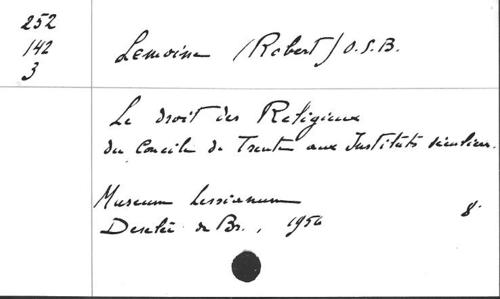 252
142
3
Lemoine (Robert) O.S.B.
Le droit des Religieux
du Concile de Trente aux Instituts séculiers.
Museum Lessianum
Desclée de Br., 1956
8°